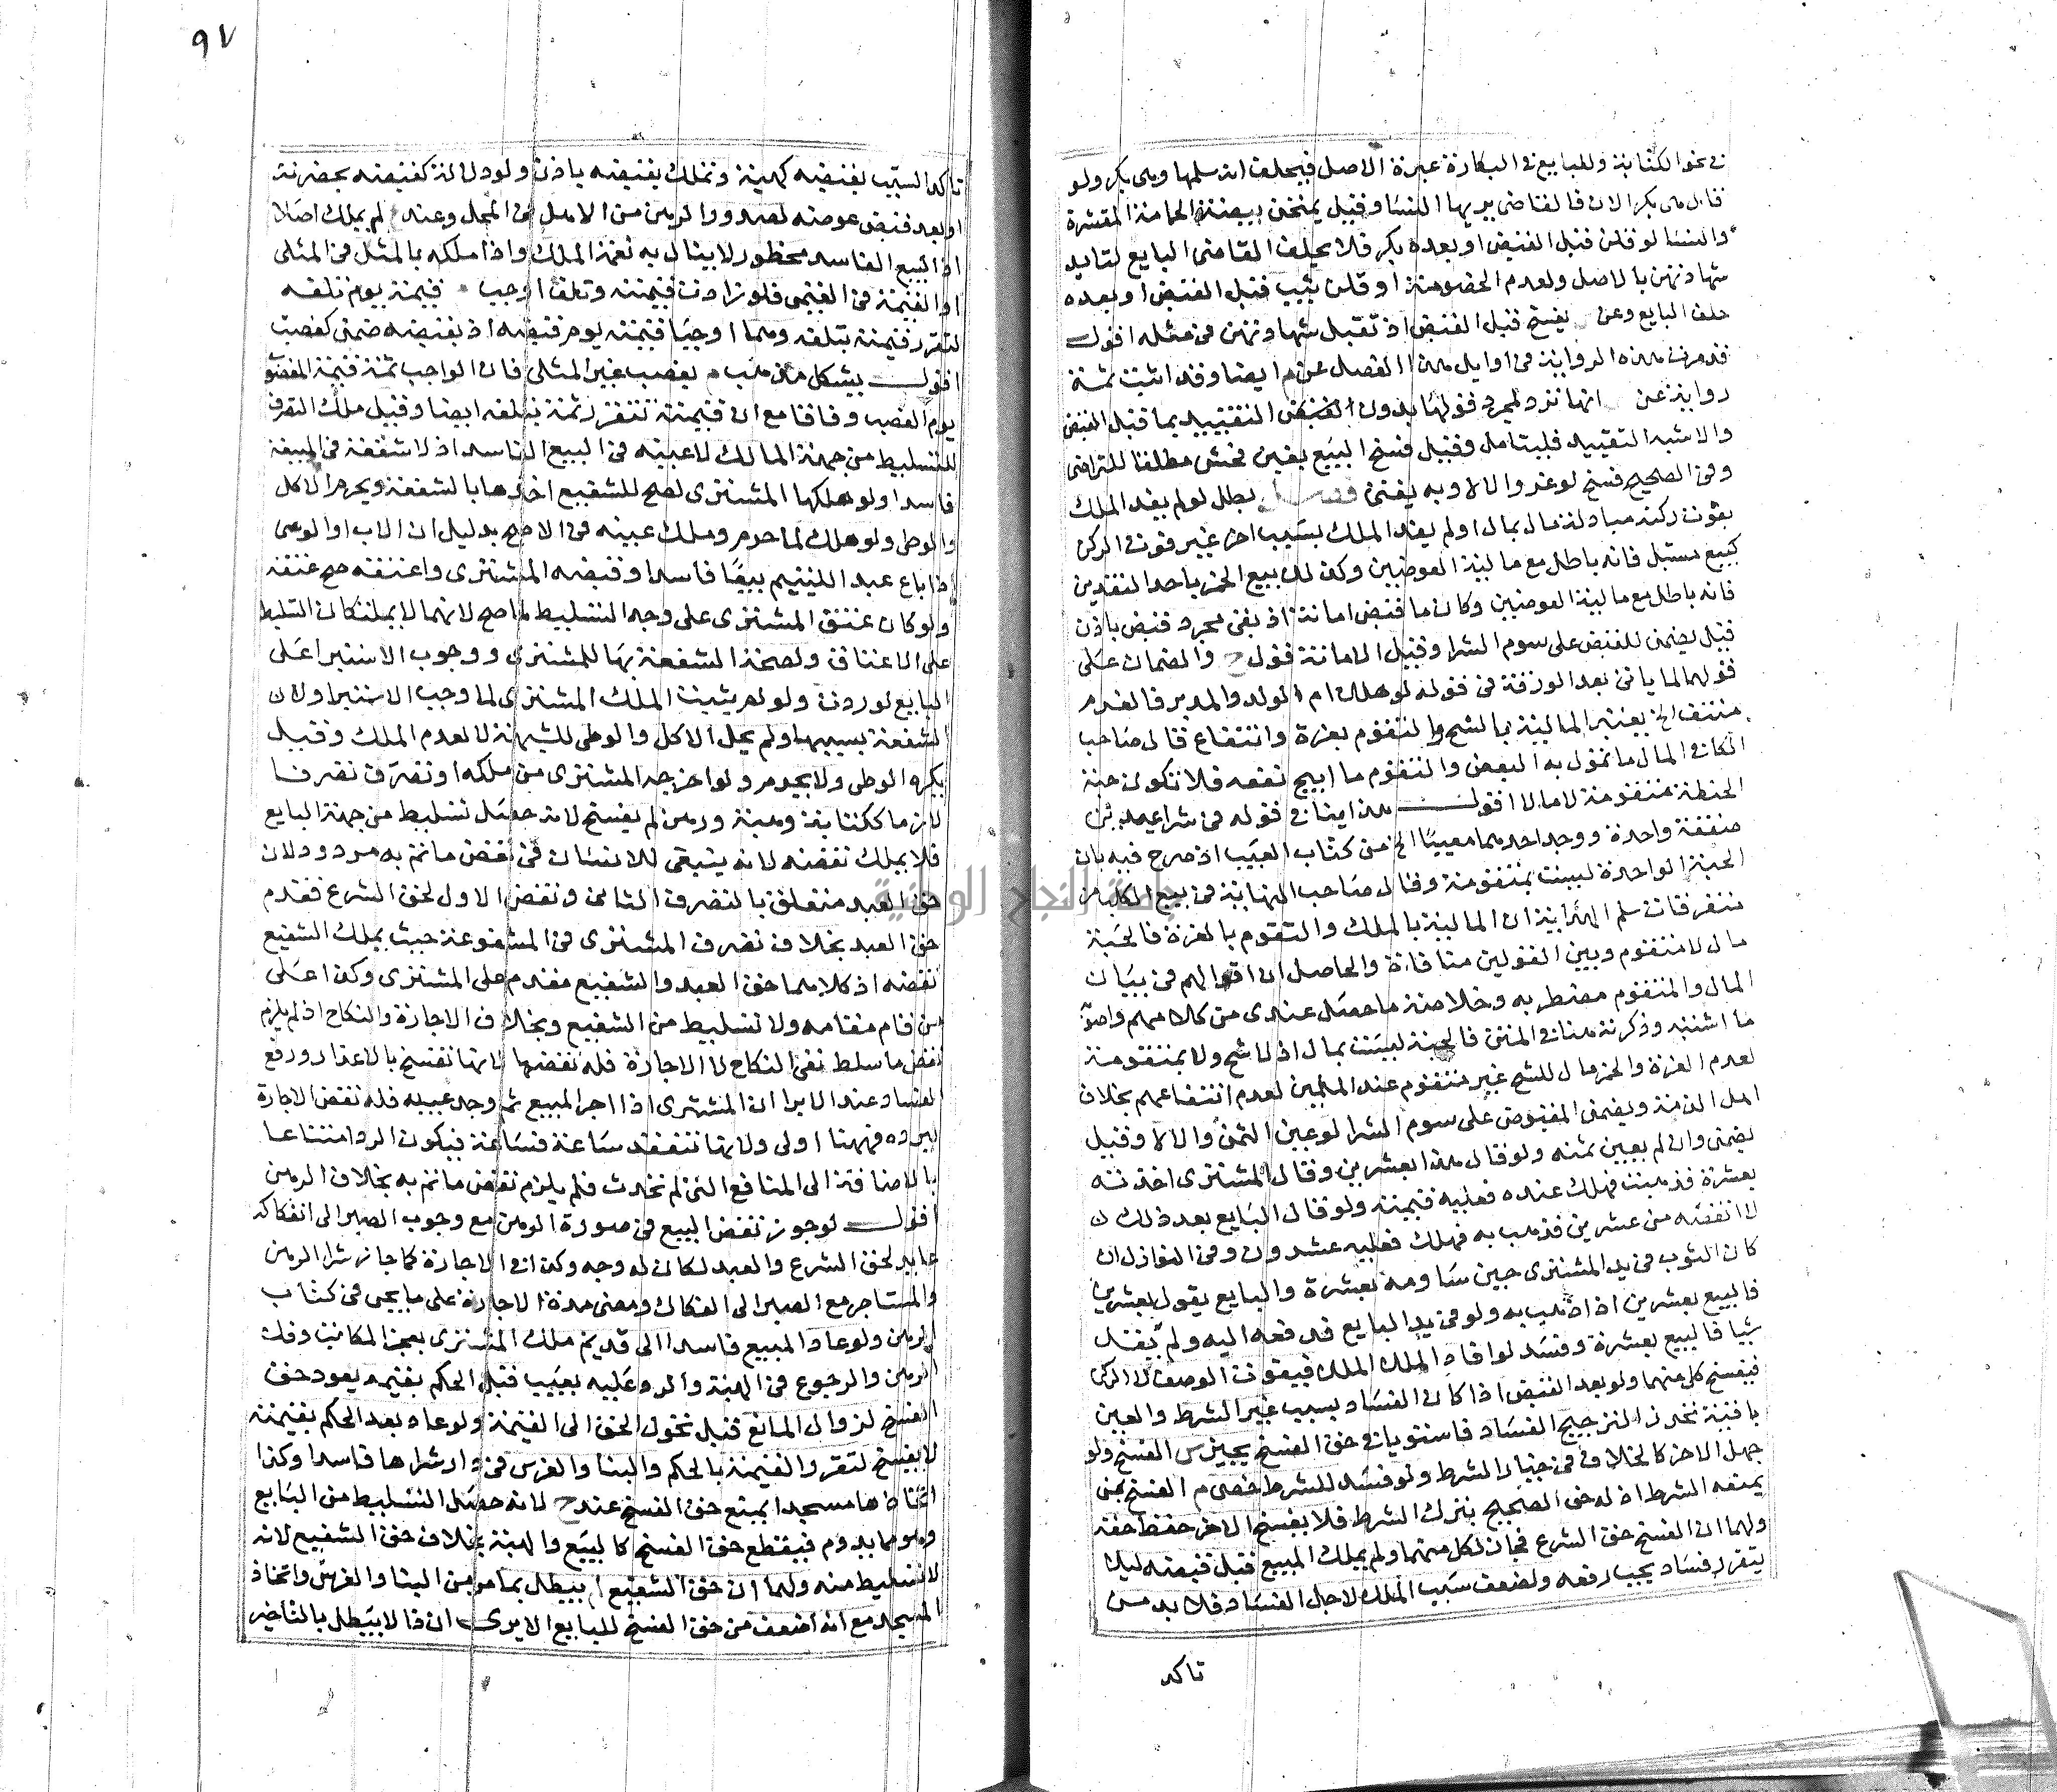 في نحو الكتابة وللبايع في البكارة عبرة الاصل فيحلف انه سلمها وهي بكر ولو
قال هي بكر الان فالقاضي يريها النسا وقيل يمتحن ببيضة الحمامة المقشرة
والنسا لو قلن قبل القبض او بعده بكر فلا يحلف القاضي البايع لتايد
شهادتهن بالاصل ولعدم الخصومة او قلن ثيب قبل القبض او بعده
حلف البايع وعن يفسخ قبل القبض اذ تقبل شهادتهن في مثله اقول
قد مرت هذه الرواية في اوايل هذا الفصل عن م ايضا وقد اثبت ثمة
رواية عن انها ترد لمجرد قولها بدون القبض التقييد بما قبل القبض
والاشبه التقييد فليتامل وقيل فسخ البيع بغبن فحش مطلقا للتراضي
وفي الصحيح فسخ لو غر والا لا وبه يفتى فصل بطل لو لم يفد الملك
بفوت ركنه مبادلة مال بمال او لم يفد الملك بسبب اخر غير فوت الركن
كبيع مستبل فانه باطل مع مالية العوضين وكذلك بيع الخمر باحد النقدين
فانه باطل مع مالية العوضين وكان ما قبض امانة اذ بقي مجرد قبض باذن
قيل يضمن للقبض على سوم الشرا وقيل الامانة قول ح والضمان على
قولهما لما ياتي بعد الورقة في قوله لو هلك ام الولد والمدبر فالغرم
منتف الخ يعتبر المالية بالشح والتقوم بعزة وانتفاع قال صاحب
الكافي المال ما تمول به البعض والتقوم ما ابيح نفعه فلا تكون حبة
الحنطة متقومة لا مالا اقول هذا ينافي قوله في شرا عبدين
صفقة واحدة ووجد احدهما معيبا الخ من كتاب العيب اذ صرح فيه بان
الحبة الواحدة ليست بمتقومة وقال صاحب النهاية في بيع الكلب من
متفرقات سلم الهداية ان المالية بالملك والتقوم بالعزة فالحبة
مال لا متقوم وبين القولين منافاة والحاصل ان اقوالهم في بيان
المال والمتقوم مضطربه وخلاصة ما حصل عندي من كلامهم واصو
ما اثبته وذكرته هنا في المتن فالحبة ليست بمال اذ لا شح ولا بمتقومة
لعدم العزة والخمر مال للشح غير متقوم عند المسلمين لعدم انتفاعهم بخلاف
اهل الذمة ويضمن المقبوض على سوم الشرا لو عين الثمن والا لا وقيل
يضمن وان لم يعين ثمنه ولو قال هذا بعشرين وقال المشتري اخذته
بعشرة فذهبت فهلك عنده فعليه قيمته ولو قال البايع بعد ذلك
لا انقصه من عشرين فذهب به فهلك فعليه عشرون وفي النوازل ان
كان الثوب في يد المشتري حين ساومه بعشرة والبايع يقول بعشرين
فالبيع بعشرين اذا ذهب به ولو في يد البايع فدفعه اليه ولم يقل
شيا فالبيع بعشرة وفسد لو افاد الملك الملك فيفوت الوصف لا الركن
فيفسخ كل منهما ولو بعد القبض اذا كان الفساد بسبب غير الشرط والعين
باقية تحرزا لترجيح الفساد فاستويا في حق الفسخ يحبر س الفسخ ولو
جهل الاخر كالخلاف في خيار الشرط ولو فسد للشرط خص م الفسخ بمن
ينفعه الشرط اذ له حق الصحيح بترك الشرط فلا يفسخ الاخر حفظ حقه
ولهما ان الفسخ حق الشرع فجاز لكل منهما ولم يملك المبيع قبل قبضه ليلا
يتقرر فساد يجب رفعه ولضعف سبب الملك لاجل الفساد فلا بد من
تاكد
٩٧
تاكد السبب بقبضه كهبة وتملك بقبضه باذن ولو دلالة كقبضه بحضرته
او بعد قبض عوضه لصدور الركن من الاهل في المحل وعند لم يملك اصلا
اذ البيع الفاسد محظور لا ينال به نعمة الملك واذا ملكه بالمثل في المثلى
او القيمة في القيمى فلو زادت قيمته وتلف اوجب قيمة يوم تلفه
لتقرر قيمته بتلفه وهما اوجبا قيمته يوم قبضه اذ بقبضه ضمن كغصب
اقول يشكل مذهب م بغصب غير المثلى فان الواجب ثمة قيمة المغصوب
يوم الغصب وفاقا مع ان قيمته تتقرر ثمة بتلفه ايضا وقيل ملك التصرف
للتسليط من جهة المالك لا عينه في البيع الفاسد اذ لا شفعة في المبيعة
فاسدا ولو هلكها المشتري لصح للشفيع اخذها بالشفعة ويحرم الاكل
والوطى ولو هلك لما حرم وملك عينه في الاصح بدليل ان الاب او الوصى
اذا باع عبد اليتيم بيعا فاسدا وقبضه المشتري واعتقه صح عتقه
ولو كان عتق المشتري على وجه التسليط لما صح لانهما لا يملكان التسليط
على الاعتاق ولصحة الشفعة بها للمشتري ووجوب الاستبرا على
البايع لو ردت ولو لم يثبت الملك المشتري لما وجب الاستبرا ولان
الشفعة بسببها ولم يحل الاكل والوطى للشبهة لا لعدم الملك وقيل
يكره الوطى ولا يحرم ولو اخرجه المشتري من ملكه او تصرف تصرفا
لازما ككتابة وهبة ورهن لم يفسخ لانه حصل تسليط من جهة البايع
فلا يملك نقضه لانه ينبغى للانسان في نقض ما تم به مردود ولان
حق العبد متعلق بالتصرف الثاني ونقض الاول لحق الشرع فقدم
حق العبد بخلاف تصرف المشتري في المشفوعة حيث يملك الشفيع
نقضه اذ كلاهما حق العبد والشفيع مقدم على المشتري وكذا على
من قام مقامه ولا تسليط من الشفيع وبخلاف الاجازة والنكاح اذ لم يلزم
نقض ما سلط نفى النكاح لا الاجارة فله نقضها لانها تفسخ بالاعذار ورفع
الفساد عند الا يرا ان المشترى اذا اجر المبيع ثم وجد عيبه فله نقض الاجارة
ليرده فههنا اولى ولانها تنعقد ساعة فساعة فيكون الرد امتناعا
بالاضافة الى المنافع التي لم تحدث فلم يلزم نقض ما تم به بخلاف الرهن
اقول لو جوز نقض البيع في صورة الرهن مع وجوب الصبر الى انفكاكه
عايد لحق الشرع والعبد لكان له وجه وكذا في الاجارة كما جاز شرا الرهن
والمستاجر مع الصبر الى الفكاك ومضى مدة الاجارة على ما يجى في كتاب
الرهن ولو عاد المبيع فاسدا الى قديم ملك المشتري بعجز المكاتب وفك
الرهن والرجوع في الهبة والرد عليه بعيب قبل الحكم بقيمه يعود حق
الفسخ لزوال المانع قبل تحول الحق الى القيمة ولو عاد بعد الحكم بقيمته
لا يفسخ لتقرر القيمة بالحكم والبنا والغرس في دار شراها فاسدا وكذا
اتخاذها مسجدا يمنع حق الفسخ عند ح لانه حصل التسليط من البايع
وهو مما يدوم فينقطع حق الفسخ كالبيع والهبة بخلاف حق الشفيع لانه
لا تسليط منه ولهما ان حق الشفيع لم يبطل بما مر من البنا والغرس واتخاذ
المسجد مع انه اضعف من حق الفسخ للبايع الا يرى ان ذا لا يبطل بالتاخير